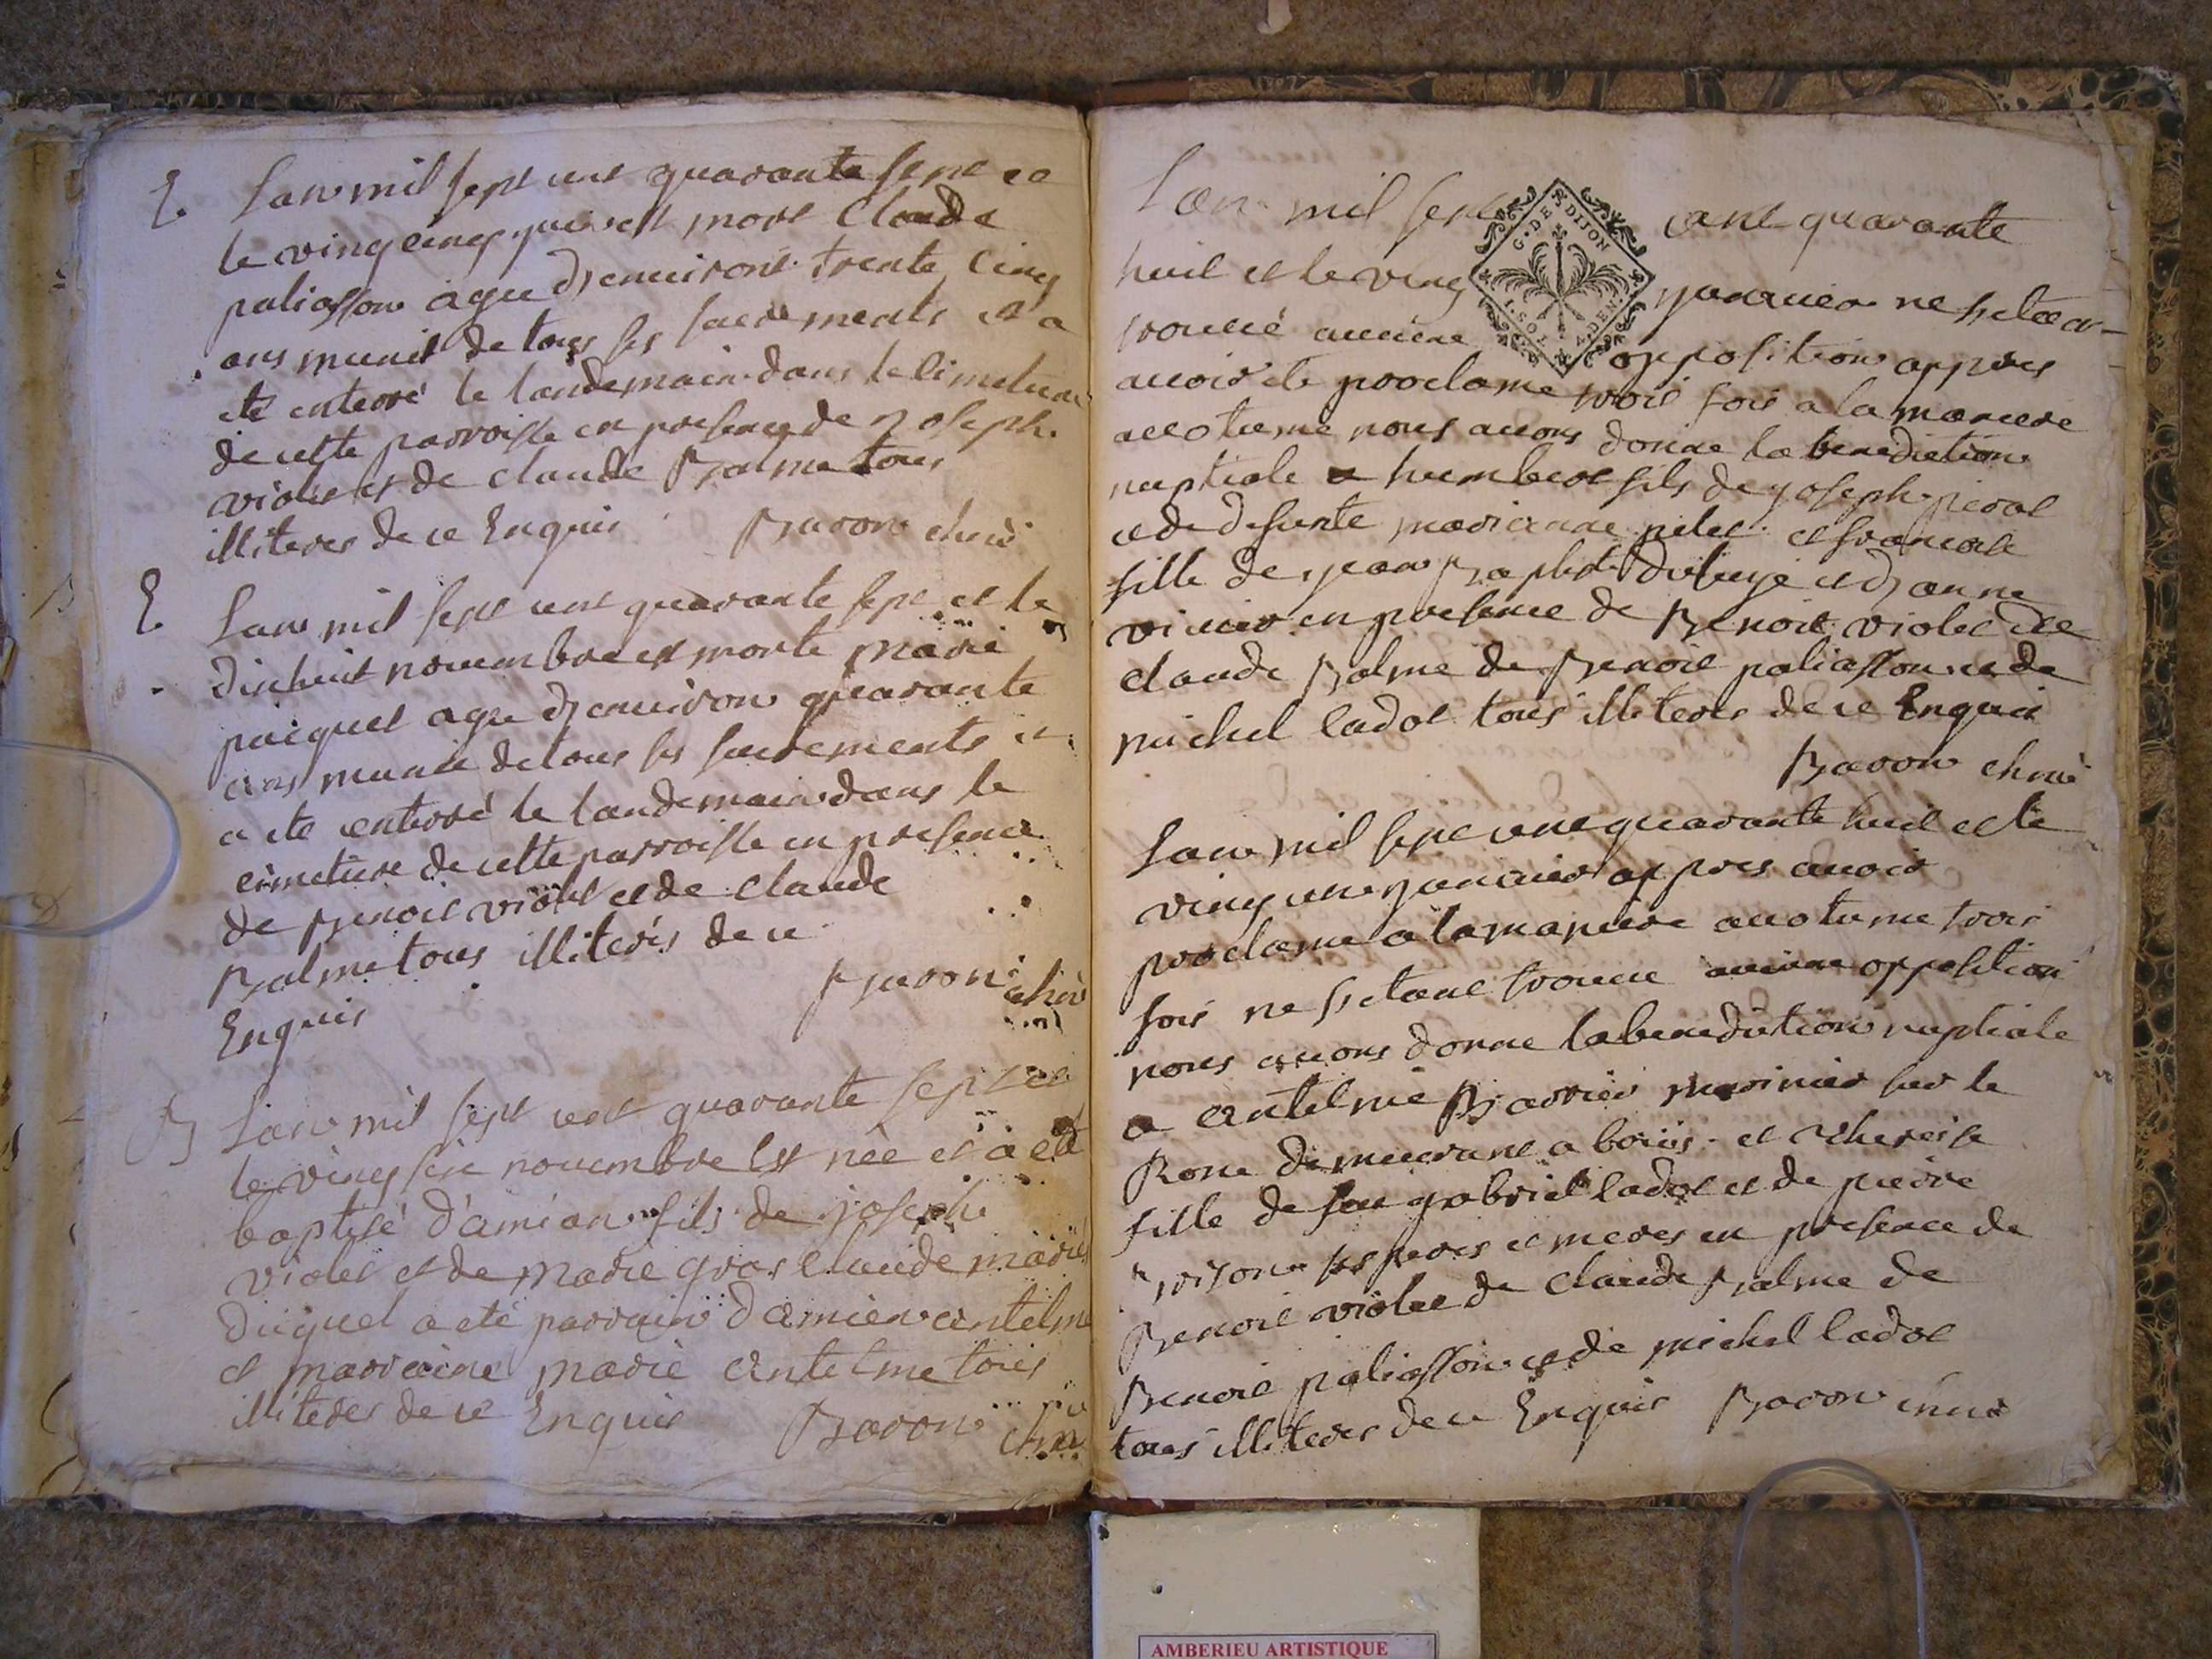 E. Lan mil sept cent quarante sept et
le vingcinq juin est mort Claude
paliasson agee d'environt trente cinq
ans munit de tous ses sacrements et a
ete enterré le landemain dans le cimetiere
de cette parroisse en presence de joseph
violet et de claude Balme tous
illiteres de ce Enquis Baron curé
E. Lan mil sept cent quarante sept et le
dixhuit nouembre est morte marie
paiquet agee d'enuiron quarante
ans munie de tous ses sacrements et
a ete enterré le landemain dans le
cimetiere de cette parroisse en presence
de Benoit violet et de claude
Balme tous illiterés de ce
Enquis Baron curé
B Lan mil sept cent quarante sept et
le vingsix nouembre Est née et a eté
baptisé d'amian fils de joseph
violet et de marie gros claude marie
duquel a eté parrain damien antelme
et marraine marie antelme tous
illiteres de ce Enquis Baron curé
Lan mil sept cent quarante
huit et le ving januier ne setan-
trouué aucune opposition appres
auoir ete proclame trois fois a la maniere
accotume nous auons donne la benediction
nuptiale a humbert fils de joseph pirot
et de defunte marianne pelet et francoise
fille de jean Baptiste et d'anne
viuier en presence de Benoit violet de
claude Balme de Benoit paliasson et de
michel ladot tous illiteres de ce Enquis
Baron curé
Lan mil sept cent quarante huit et le
ving un januier appres auoir
proclame a la maniere accotume trois
fois ne setant trouue aucune opposition
nous auons donne la benediction nuptiale
a antelme Barrier marinier sur le
Rone demeurant a boüis et thereise
fille de feu gabriel ladot et de pierre
ses peres et meres en presence de
Benoit violet de claude Balme de
Benoit paliasson et de michel ladot
tous illiteres de ce Enquis Baron curé
G. DE DIJON
AMBERIEU ARTISTIQUE